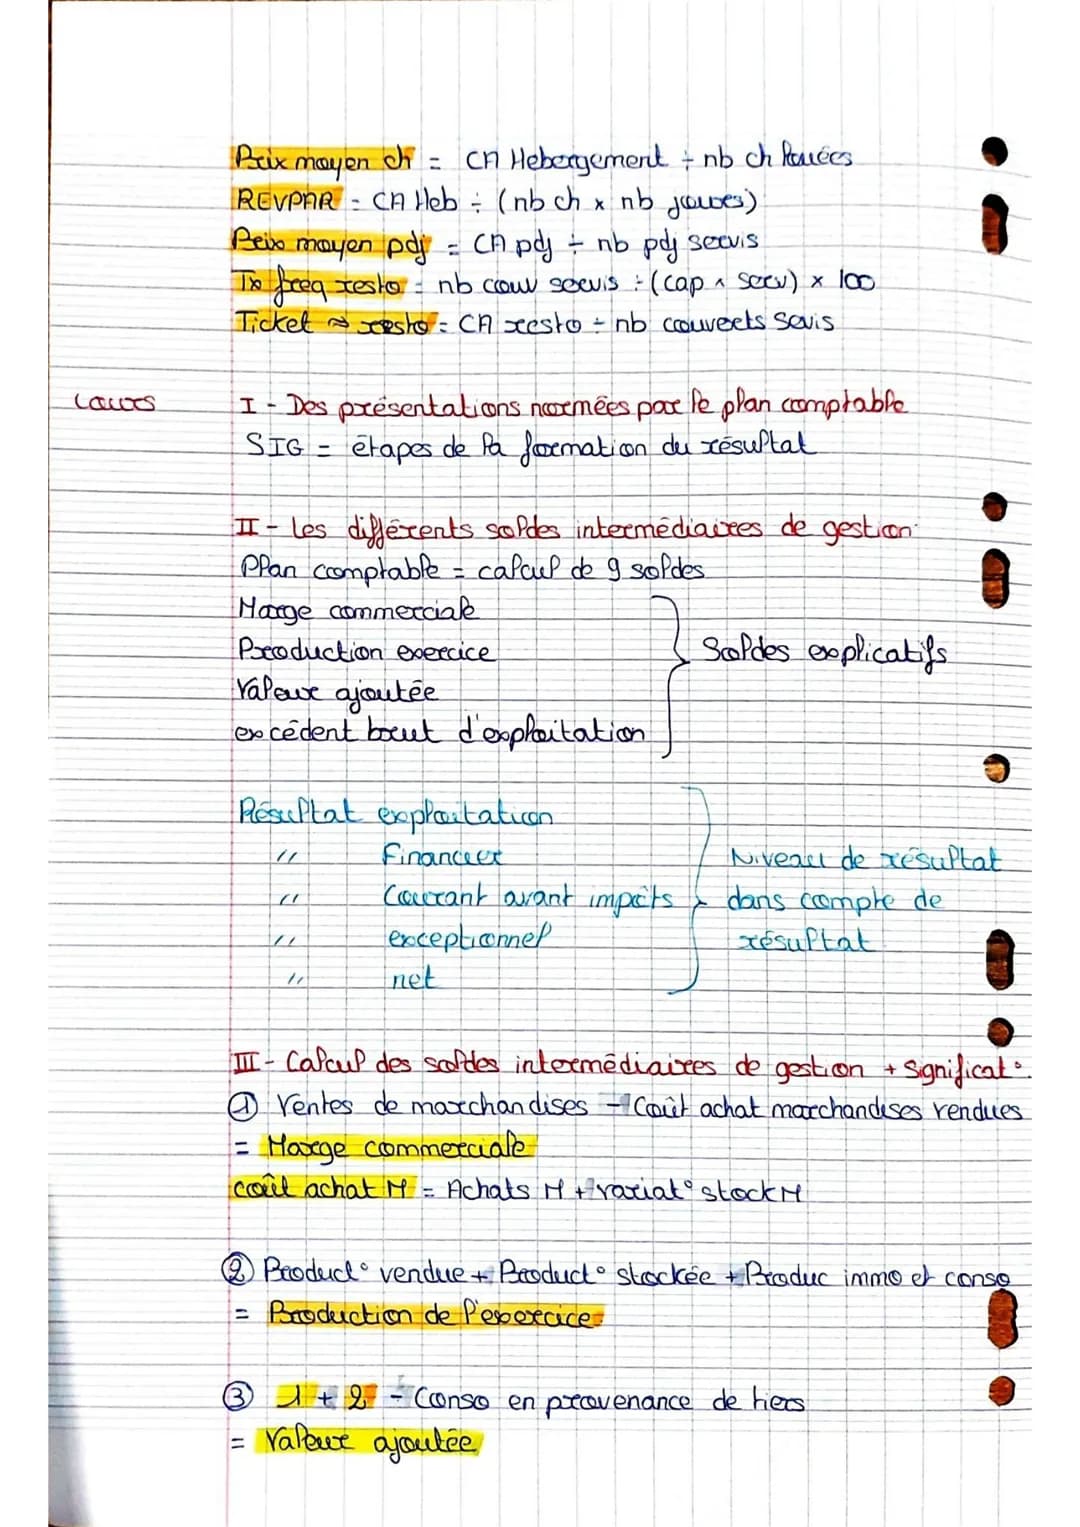 Prix moyen ch = CA Hebergement ÷ nb ch louées
REVPAR = CA Heb ÷ (nb ch x nb jours)
Prix moyen pdj = CA pdj ÷ nb pdj servis
Tx freq resto = nb couv servis ÷ (cap x serv) x 100
Ticket resto = CA resto ÷ nb couverts sevis
Cours
I - Des présentations normées par le plan comptable
SIG = étapes de la formation du résultat
II - Les différents soldes intermédiaires de gestion
Plan comptable = calcul de 9 soldes
Marge commerciale
Production exercice
Valeur ajoutée
excédent brut d'exploitation
Soldes explicatifs
Résultat exploitation
" Financier
" Courant avant impôts
" exceptionnel
" net
Niveau de résultat
dans compte de
résultat
III - Calcul des soldes intermédiaires de gestion + Significat°.
① Ventes de marchandises - Coût achat marchandises vendues
= Marge commerciale
coût achat M = Achats M + variat° stock M
② Product° vendue + Product° stockée + Produc immo et conso
= Production de l'exercice
③ 1 + 2 - Conso en provenance de tiers
= Valeur ajoutée